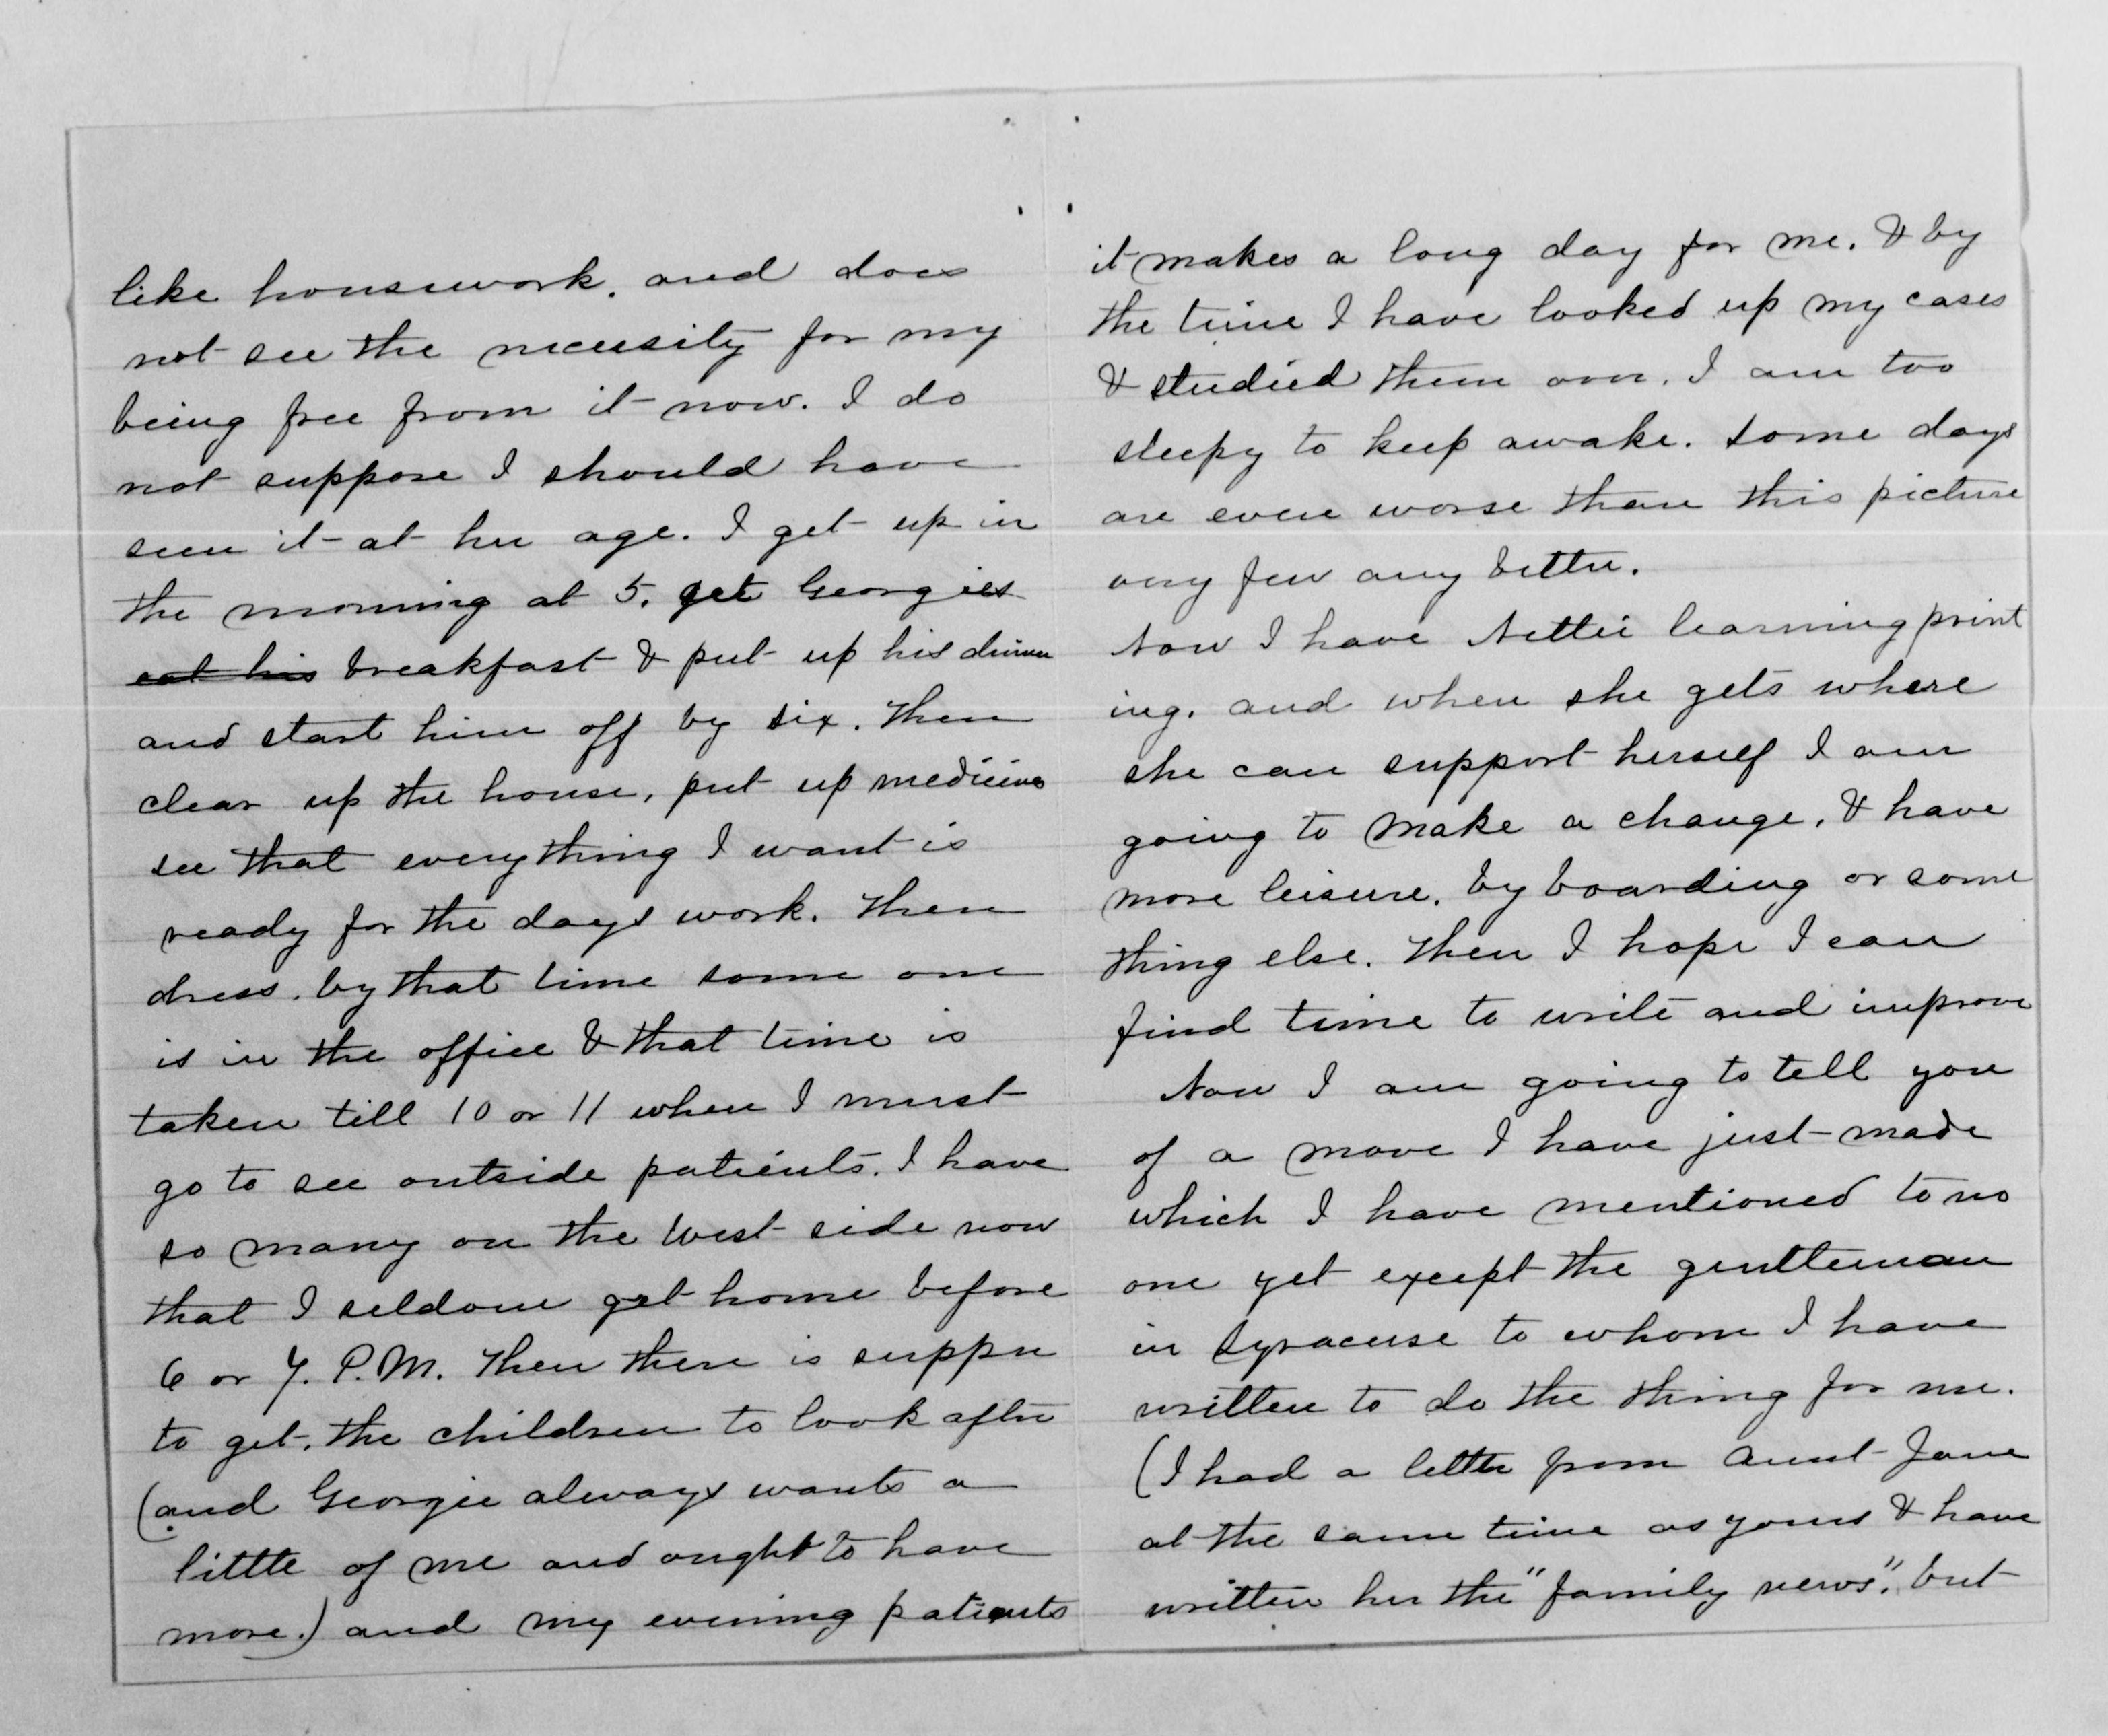 like housework. and does
not see the necessity for my
being free from it now. I do
not suppose I should have
seen it at her age. I get up in
the morning at 5. get Georgies
eat his breakfast & put up his dinner
and start him off by six. Then
clear up the house, put up medicines
see that everything I want is
ready for the days work. Then
dress. by that time some one
is in the office & that time is
taken till 10 or 11 when I must
go to see outside patients. I have
so many on the West side now
that I seldom get home before
6 or 7. P.M. Then there is supper
to get. the children to look after
(and Georgie always wants a
little of me and ought to have
more.) and my evening patients
it makes a long day for me. & by
the time I have looked up my cases
& studied them over. I am too
sleepy to keep awake. Some days
are even worse than this picture
very few any better.
Now I have Nettie learning print
ing. and when she gets where
she can support herself I am
going to make a change. & have
more leisure. by boarding or some
thing else. Then I hope I can
find time to write and improve
Now I am going to tell you
of a move I have just made
which I have mentioned to no
one yet except the gentleman
in Syracuse to whom I have
written to do the thing for me.
(I had a letter from Aunt Jane
at the same time as yours & have
written her the "family news". but